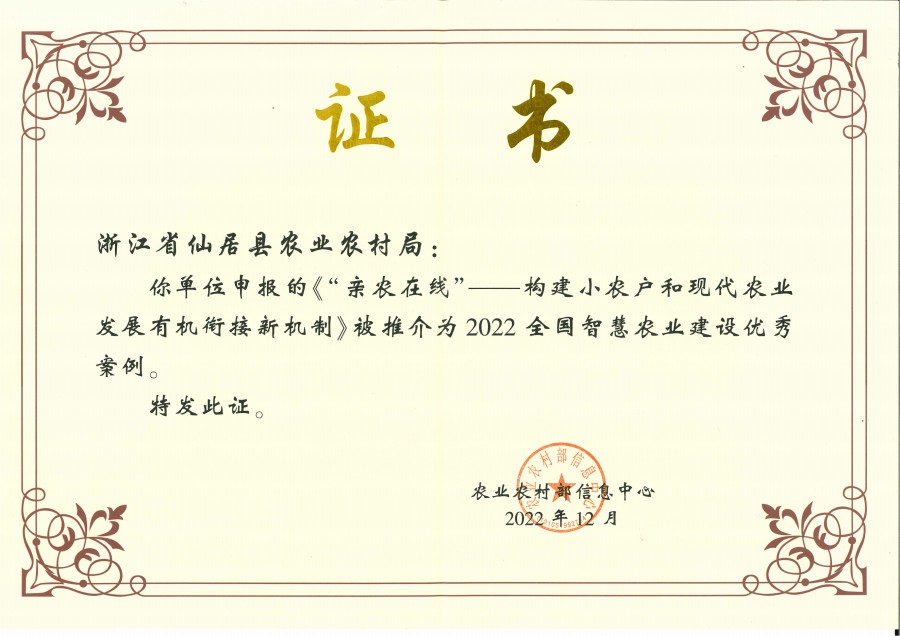 证 书
浙江省仙居县农业农村局：
你单位申报的《“亲农在线”——构建小农户和现代农业
发展有机衔接新机制》被推介为 2022 全国智慧农业建设优秀
案例。
特发此证。
农业农村部信息中心
2022 年 12 月
农业农村部信息中心